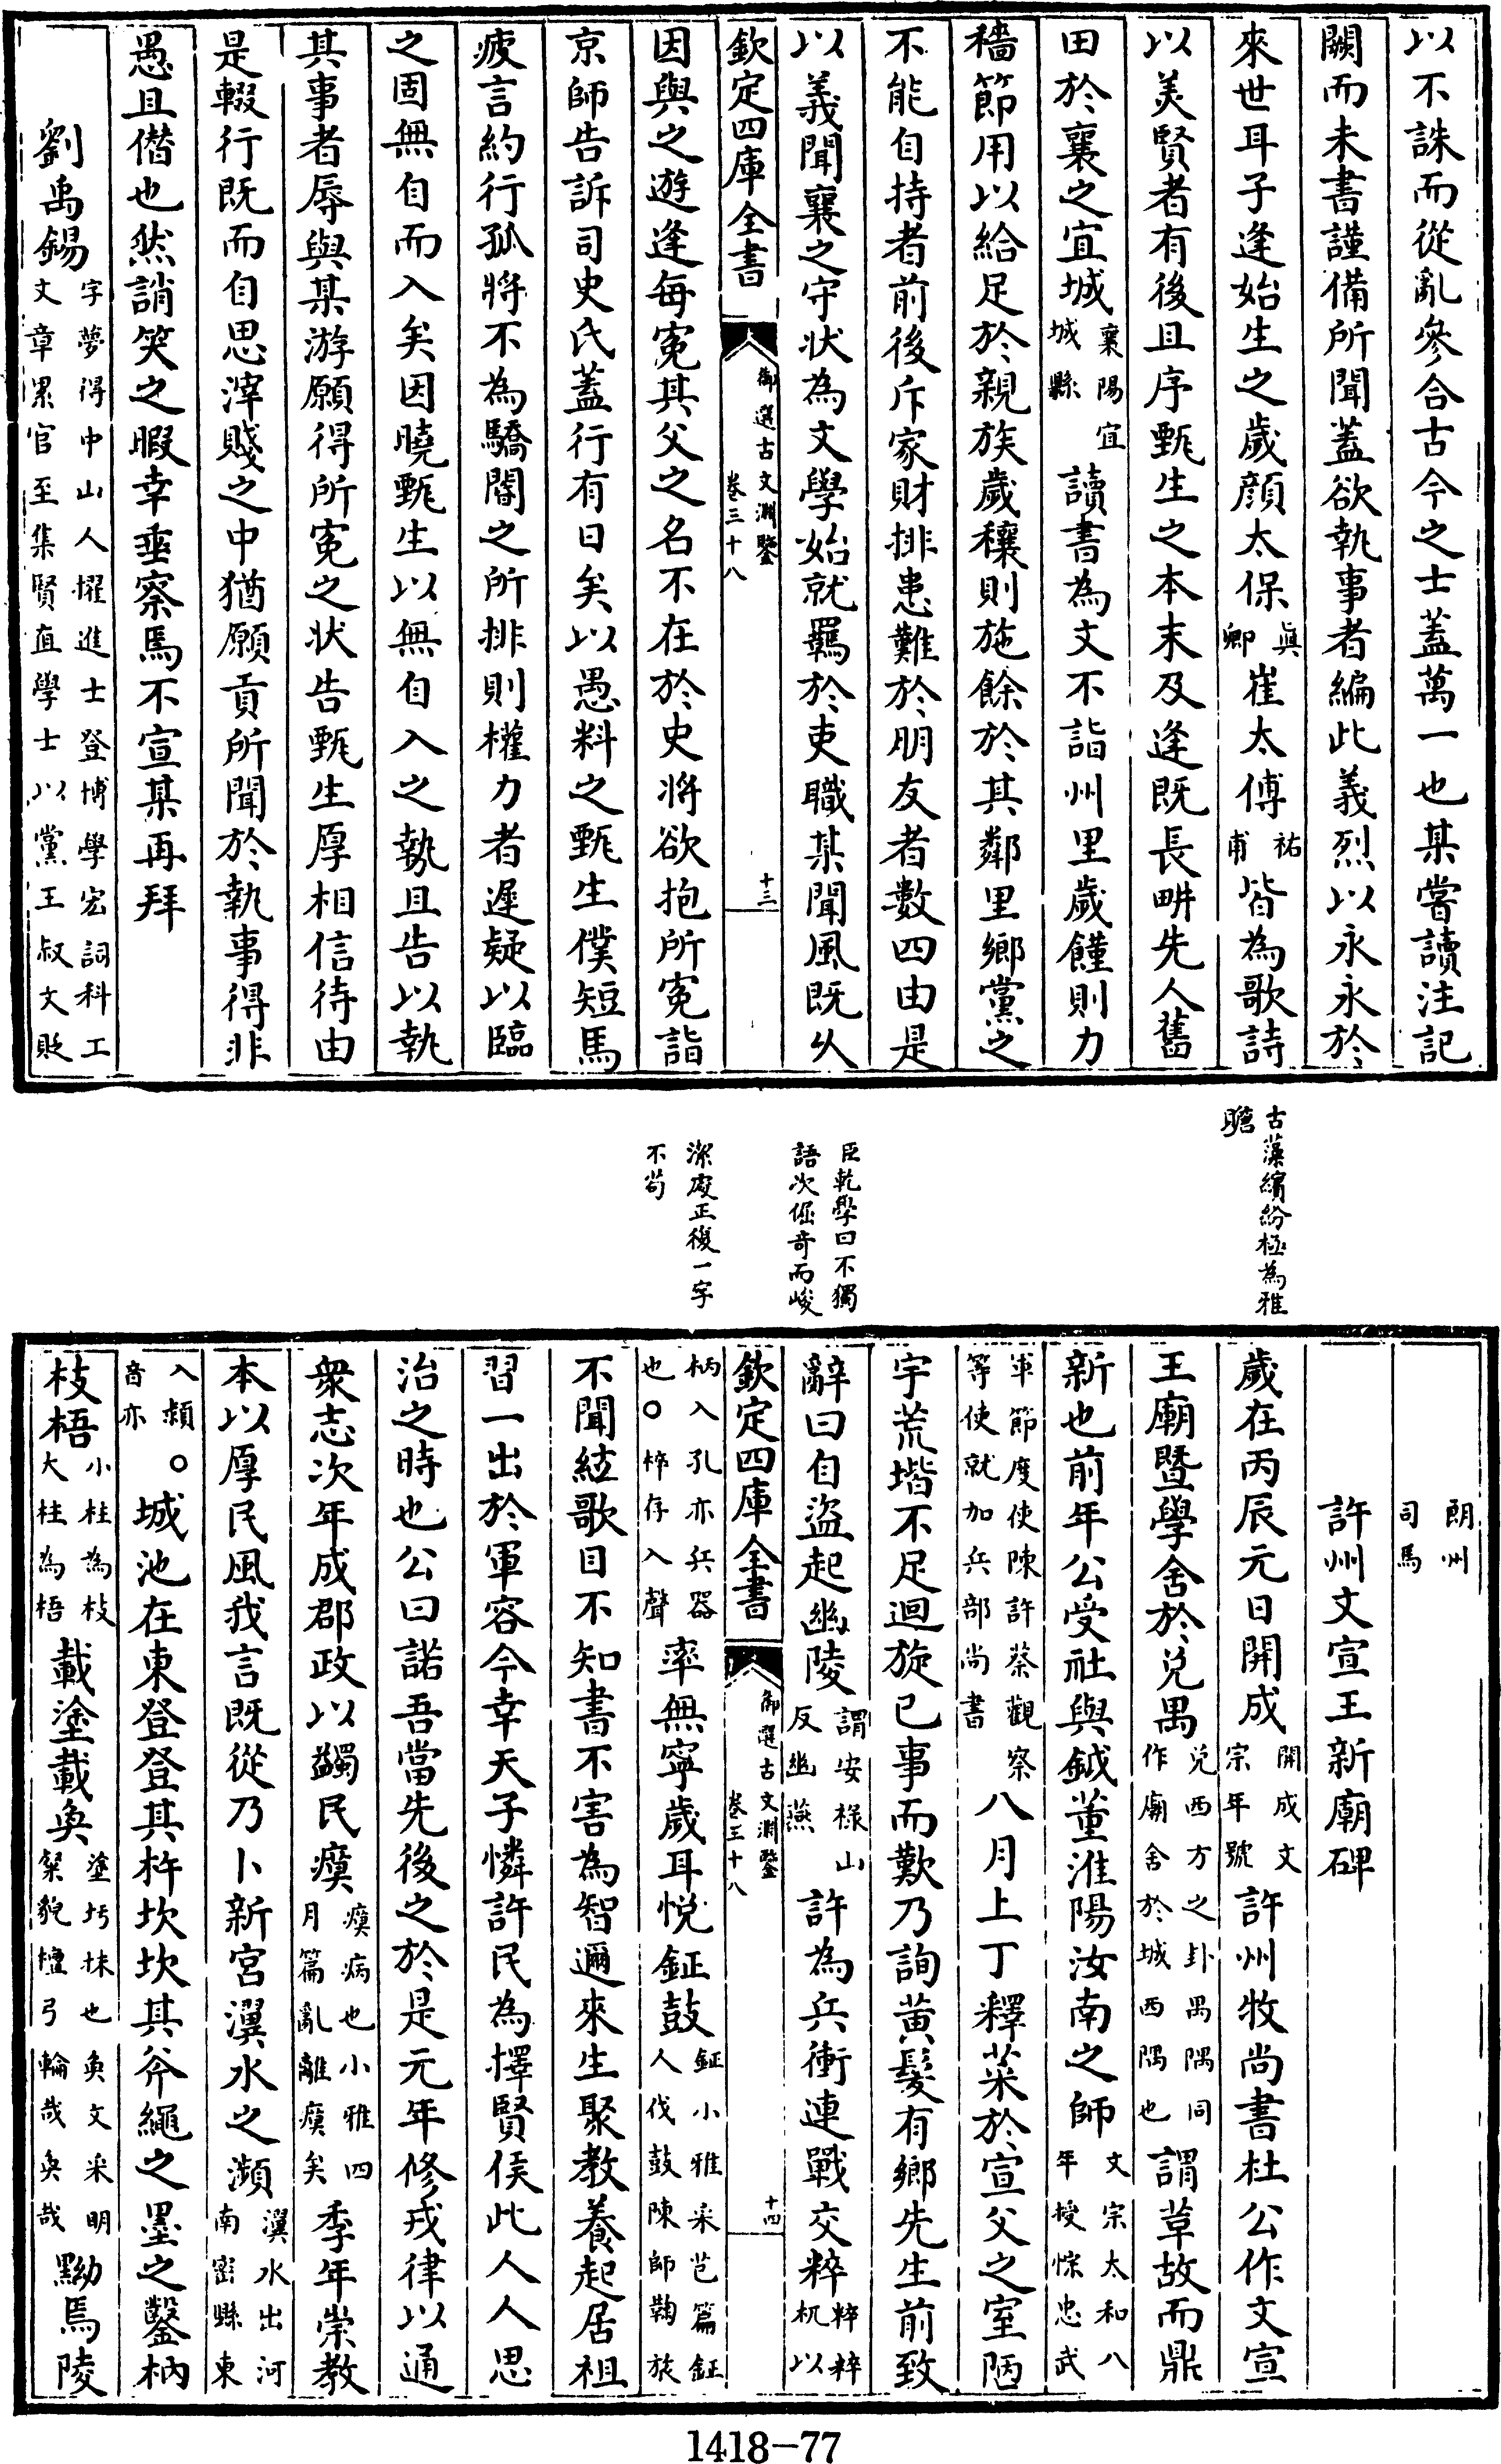 以不誅而從亂參合古今之士蓋萬一也某嘗讀注記
闕而未書謹備所聞蓋欲執事者編此義烈以永永於
來世耳子逢始生之歲顔太保真卿崔太傅祐甫皆為歌詩
以美賢者有後且序甄生之本末及逢既長畊先人舊
田於襄之宜城襄陽宜城縣讀書為文不詣州里歲饉則力
穡節用以給足於親族歲穰則施餘於其鄰里鄉黨之
不能自持者前後斥家財排患難於朋友者數四由是
以義聞襄之守状為文學始就羈於吏職某聞風既久
欽定四庫全書
御選古文淵鑒
卷三十八
十三
因與之遊逢每寃其父之名不在於史將欲抱所寃詣
京師告訴司史氏蓋行有日矣以愚料之甄生僕短馬
疲言約行孤將不為驕閽之所排則權力者遲疑以臨
之固無自而入矣因曉甄生以無自入之埶且告以執
其事者辱與某游願得所寃之状告甄生厚相信待由
是輟行既而自思滓賤之中猶願貢所聞於執事得非
愚且僭也然誚笑之暇幸垂察焉不宣某再拜
劉禹錫字夢得中山人擢進士登博學宏詞科工文章累官至集賢直學士以黨王叔文貶
古藻繽紛極為雅
贍
臣乾學曰不獨
語次倔奇而峻
潔廋正復一字
不茍
朗州司馬
許州文宣王新廟碑
歲在丙辰元日開成開成文宗年號許州牧尚書杜公作文宣
王廟暨學舍於兌禺兌西方之卦禺隅同作廟舍於城西隅也謂草故而鼎
新也前年公受社與鉞董淮陽汝南之師文宗太和八年授悰忠武
軍節度使陳許蔡觀察等使就加兵部尚書八月上丁釋菜於宣父之室陋
宇荒堦不足迴旋已事而歎乃詢黄髮有鄉先生前致
辭曰自盜起幽陵謂安禄山反幽燕許為兵衝連戰交粹粹粹杌以
欽定四庫全書
御選古文淵鑒
卷三十八
十四
柄入孔亦兵器也○椊存入聲率無寧歲耳悅鉦鼓鉦小雅采芑篇鉦人伐鼓陳師鞠旅
不聞絃歌目不知書不害為智邇來生聚教養起居祖
習一出於軍容今幸天子憐許民為擇賢侯此人人思
治之時也公曰諾吾當先後之於是元年修戎律以通
衆志次年成郡政以蠲民瘼瘼病也小雅四月篇亂離瘼矣季年崇教
本以厚民風我言既從乃卜新宮瀷水之瀕瀷水出河南密縣東
入潁○音亦城池在東登登其杵坎坎其斧繩之墨之鑿枘
枝梧小柱為枝大柱為梧載塗載奐塗圬抹也奐文采明粲貌檀弓輪哉奐哉黝焉陵
1418-77